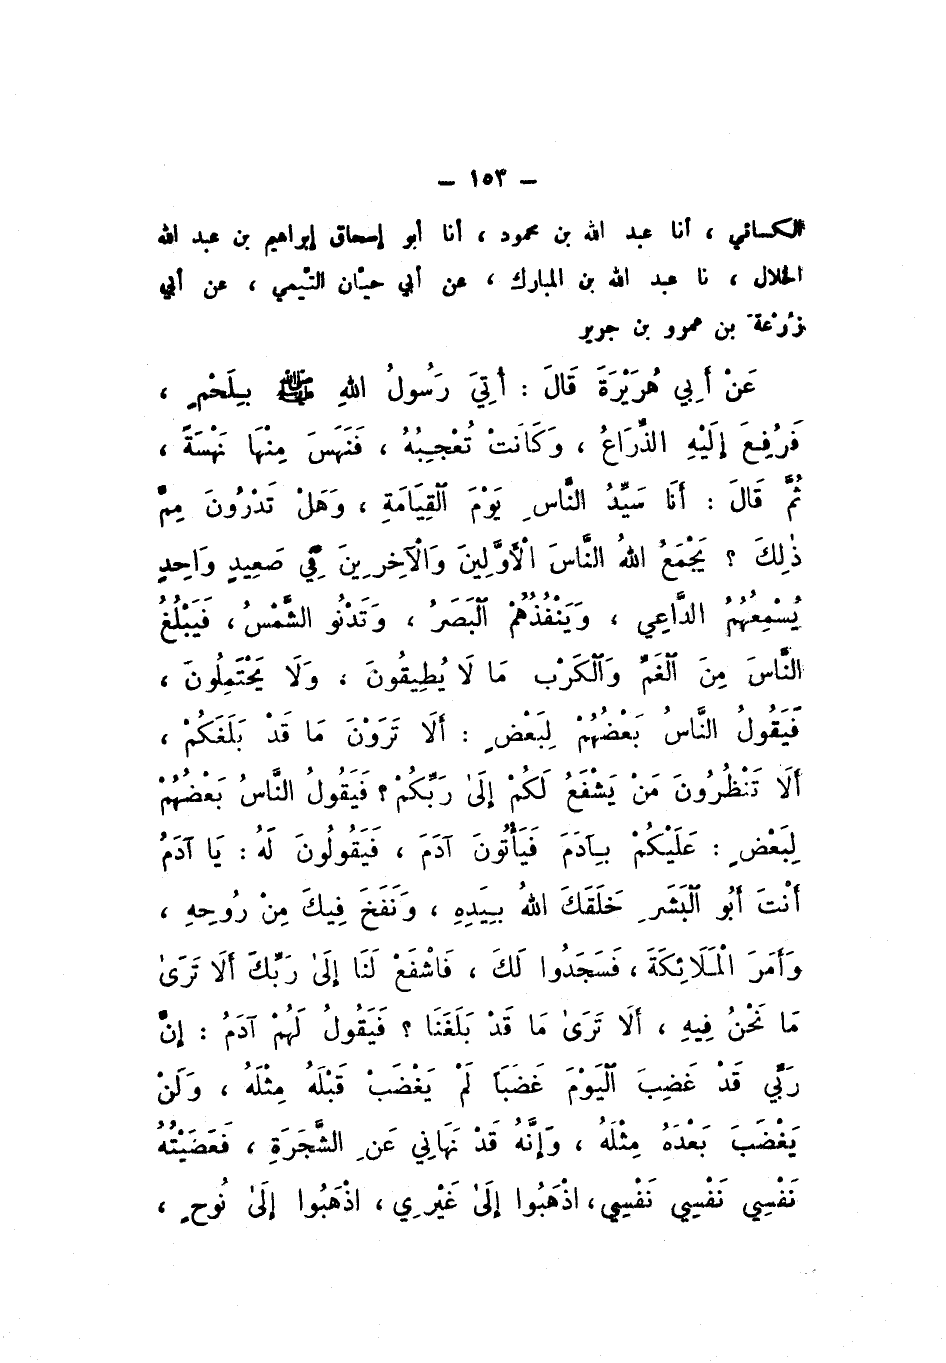 – ١٥٣ –
الكسائي ، أنا عبد الله بن محمود ، أنا أبو إسحاق إبراهيم بن عبد الله
الخلال ، نا عبد الله بن المبارك ، عن أبي حيّان التّيمي ، عن أبي
زُرْعة بن عمرو بن جرير
عَنْ أَبِي هُرَيْرَةَ قَالَ : أُتِيَ رَسُولُ اللهِ ﷺ بِلَحْمٍ ،
فَرُفِعَ إِلَيْهِ الذِّرَاعُ ، وَكَانَتْ تُعْجِبُهُ ، فَنَهَسَ مِنْهَا نَهْسَةً ،
ثُمَّ قَالَ : أَنَا سَيِّدُ النَّاسِ يَوْمَ ٱلْقِيَامَةِ ، وَهَلْ تَدْرُونَ مِمَّ
ذٰلِكَ ؟ يَجْمَعُ اللهُ النَّاسَ الْأَوَّلِينَ وَالْآخِرِينَ فِي صَعِيدٍ وَاحِدٍ
يُسْمِعُهُمُ الدَّاعِي ، وَيَنْفُذُهُمْ ٱلْبَصَرُ ، وَتَدْنُو الشَّمْسُ ، فَيَبْلُغُ
النَّاسَ مِنَ ٱلْغَمِّ وَٱلْكَرْبِ مَا لَا يُطِيقُونَ ، وَلَا يَحْتَمِلُونَ ،
فَيَقُولُ النَّاسُ بَعْضُهُمْ لِبَعْضٍ : أَلَا تَرَوْنَ مَا قَدْ بَلَغَكُمْ ،
أَلَا تَنْظُرُونَ مَنْ يَشْفَعُ لَكُمْ إِلَىٰ رَبِّكُمْ ؟ فَيَقُولُ النَّاسُ بَعْضُهُمْ
لِبَعْضٍ : عَلَيْكُمْ بِآدَمَ فَيَأْتُونَ آدَمَ ، فَيَقُولُونَ لَهُ : يَا آدَمُ
أَنْتَ أَبُو ٱلْبَشَرِ خَلَقَكَ اللهُ بِيَدِهِ ، وَنَفَخَ فِيكَ مِنْ رُوحِهِ ،
وَأَمَرَ الْمَلَائِكَةَ ، فَسَجَدُوا لَكَ ، فَاشْفَعْ لَنَا إِلَىٰ رَبِّكَ أَلَا تَرَىٰ
مَا نَحْنُ فِيهِ ، أَلَا تَرَىٰ مَا قَدْ بَلَغَنَا ؟ فَيَقُولُ لَهُمْ آدَمُ : إِنَّ
رَبِّي قَدْ غَضِبَ ٱلْيَوْمَ غَضَبًا لَمْ يَغْضَبْ قَبْلَهُ مِثْلَهُ ، وَلَنْ
يَغْضَبَ بَعْدَهُ مِثْلَهُ ، وَإِنَّهُ قَدْ نَهَانِي عَنِ الشَّجَرَةِ ، فَعَصَيْتُهُ
نَفْسِي نَفْسِي نَفْسِي ، اذْهَبُوا إِلَىٰ غَيْرِي ، اذْهَبُوا إِلَىٰ نُوحٍ ،